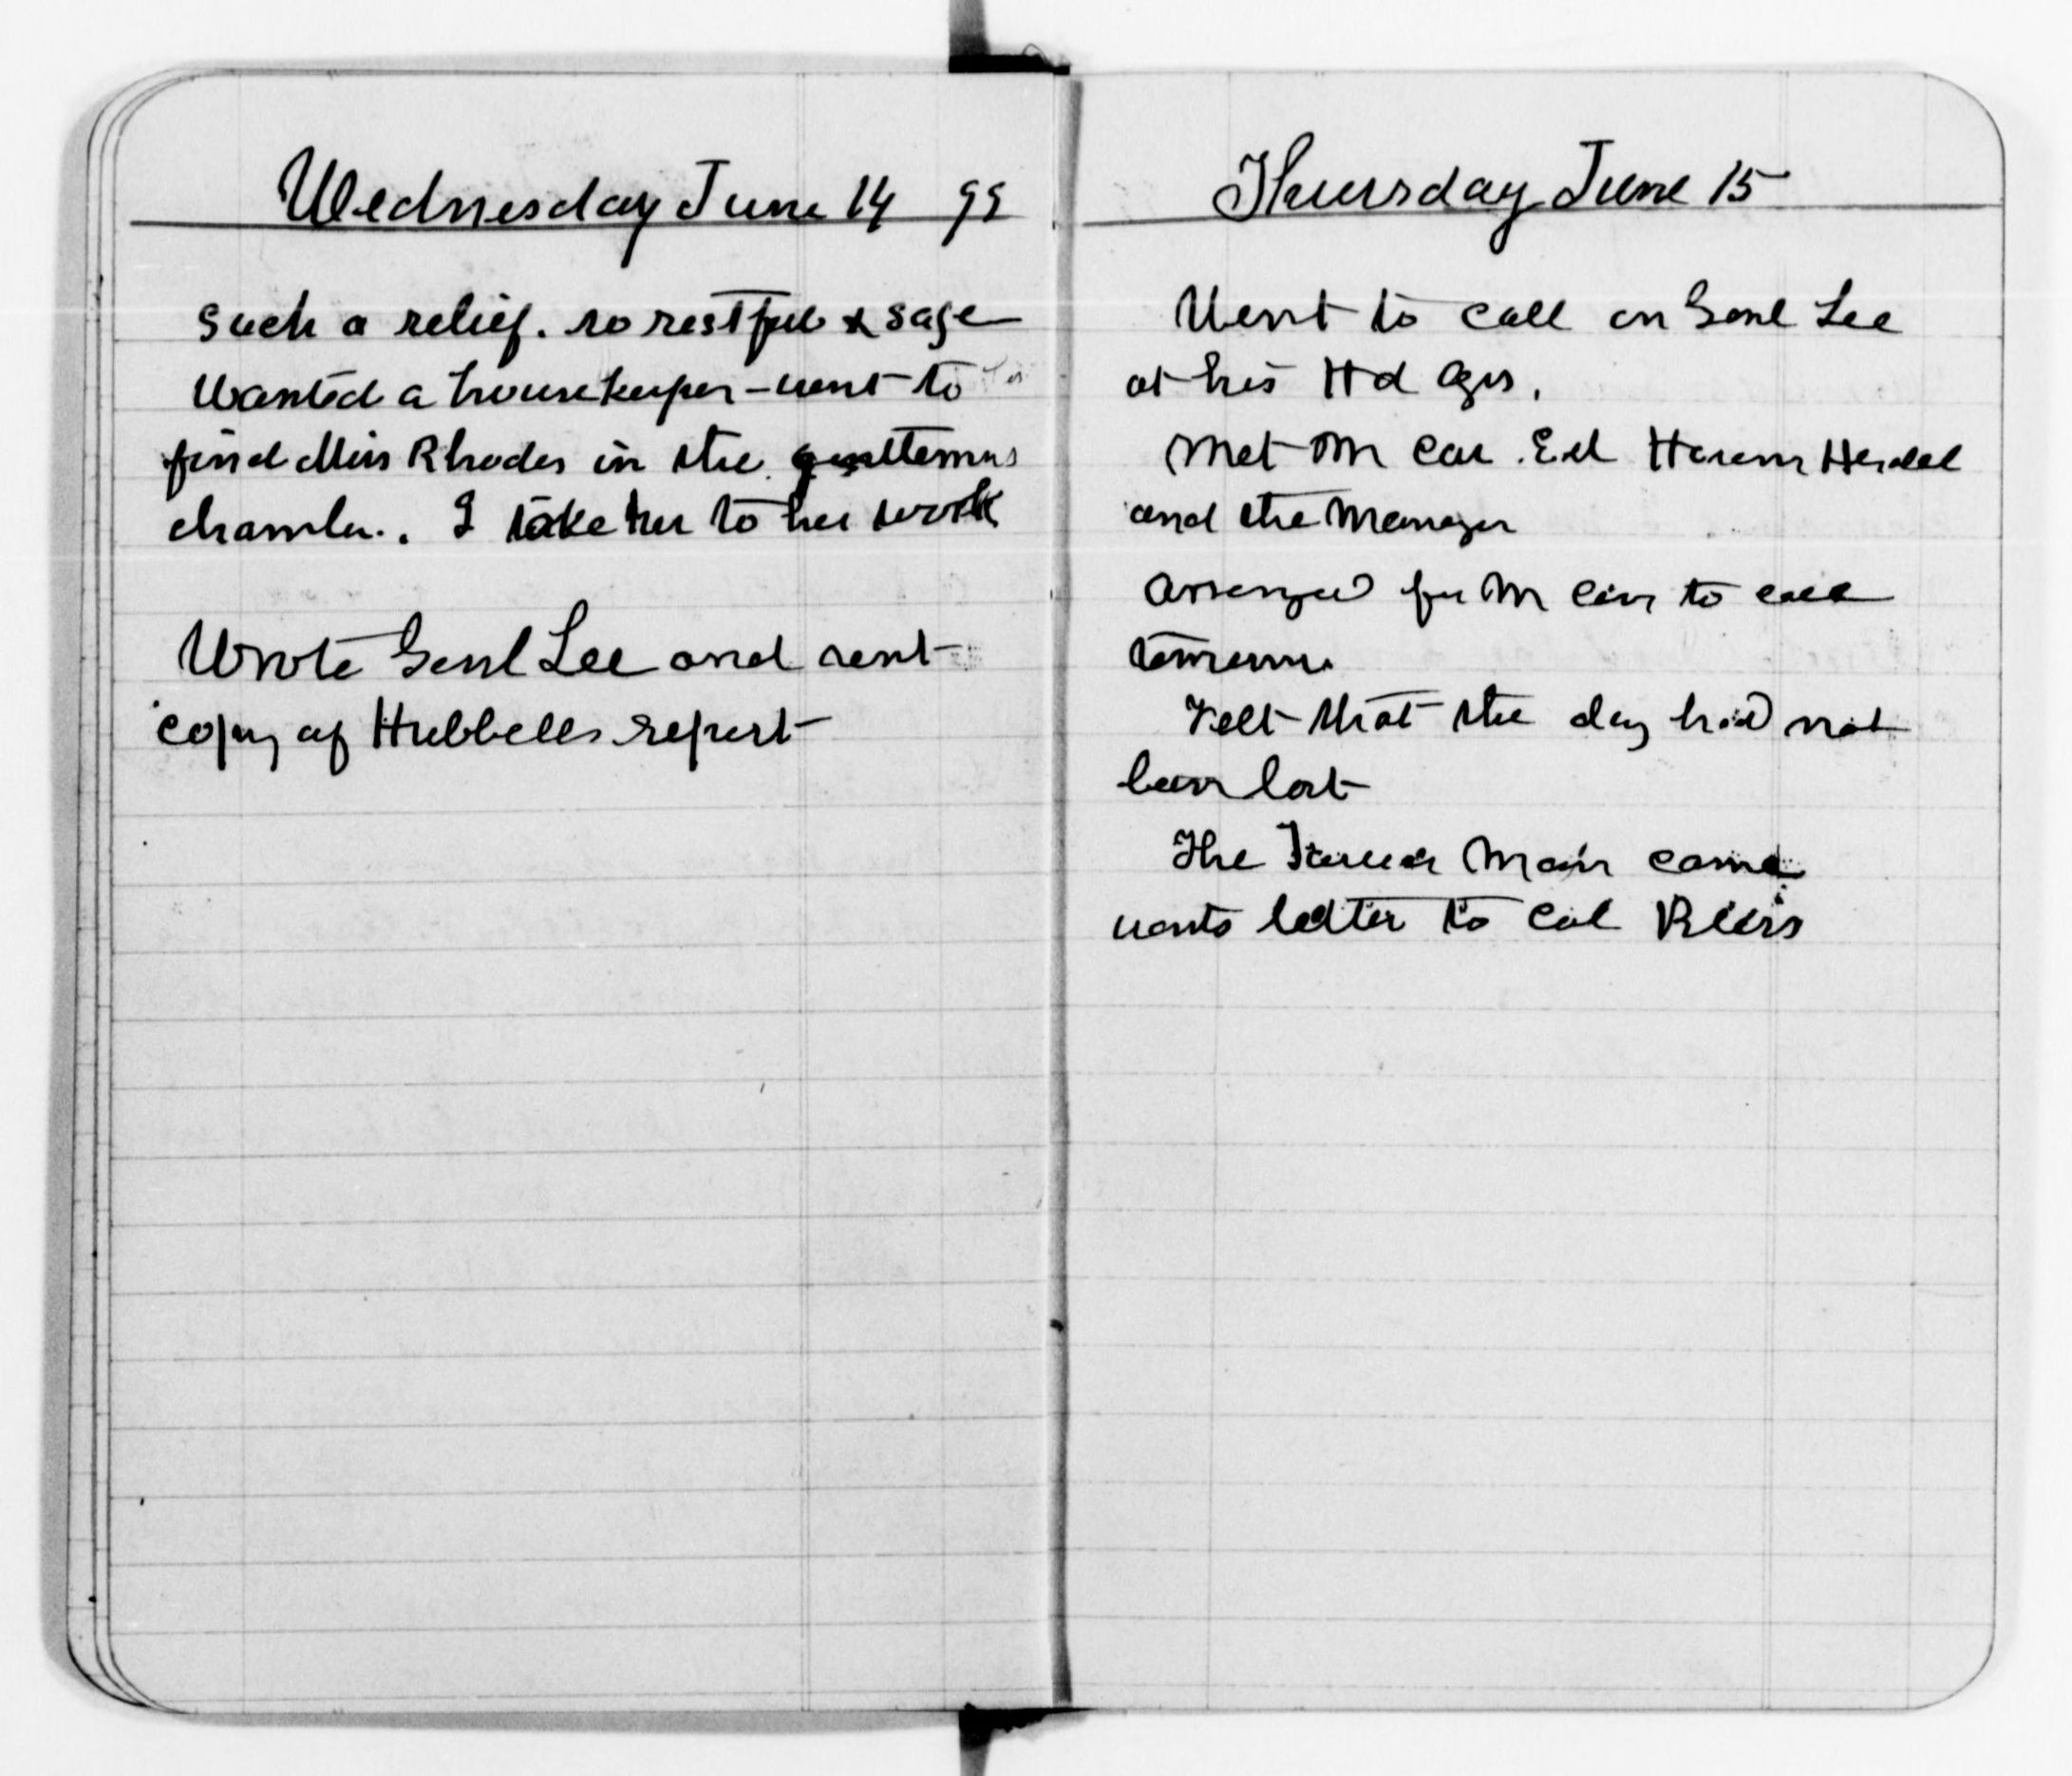 Wednesday June 14 99
such a relief. so restful & safe
Wanted a housekeeper - went to
find Miss Rhodes in the gentlemens
chamber.. I take her to her work
Wrote Genl Lee and sent
copy of Hubbells report
Thursday June 15
Went to call on Genl Lee
at his Hd Qrs.
Met Mr Ed
and the Manager
Arranged for Mr to call
tomorrow
Felt that the day had not
been lost
The Man came
wants letter to Col